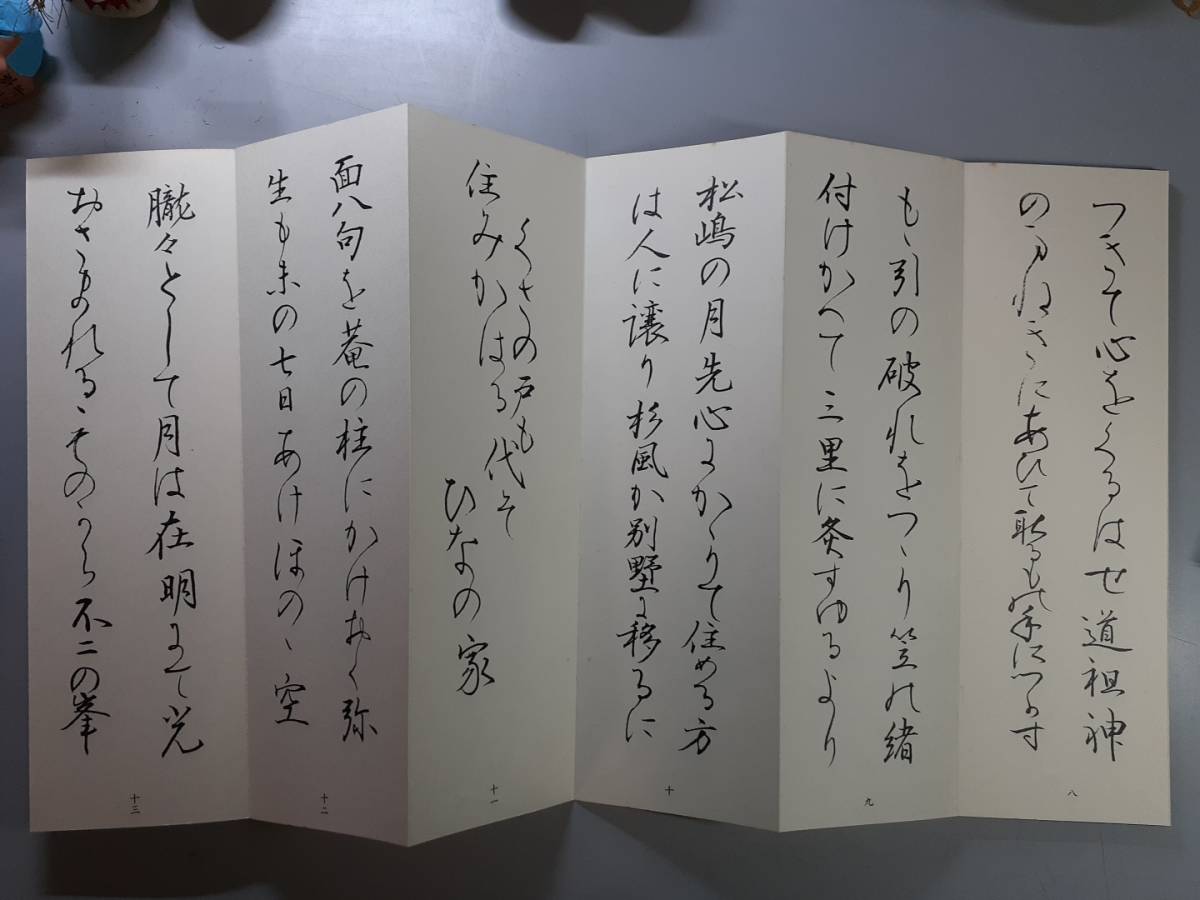 つきて心をくるはせ道祖神
のまねきにあひて取るもの手につかす
八
もゝ引の破れをつゝり笠の緒
付けかへて三里に灸すゆるより
九
松嶋の月先心にかゝりて住める方
は人に譲り杉風か別墅に移るに
十
くさの戸も
住みかはる代そ
ひなの家
十一
面八句を菴の柱にかけおく弥
生も末の七日あけほのゝ空
十二
朧々として月は在明にて光
おさまれるゝものから不二の峯
十三